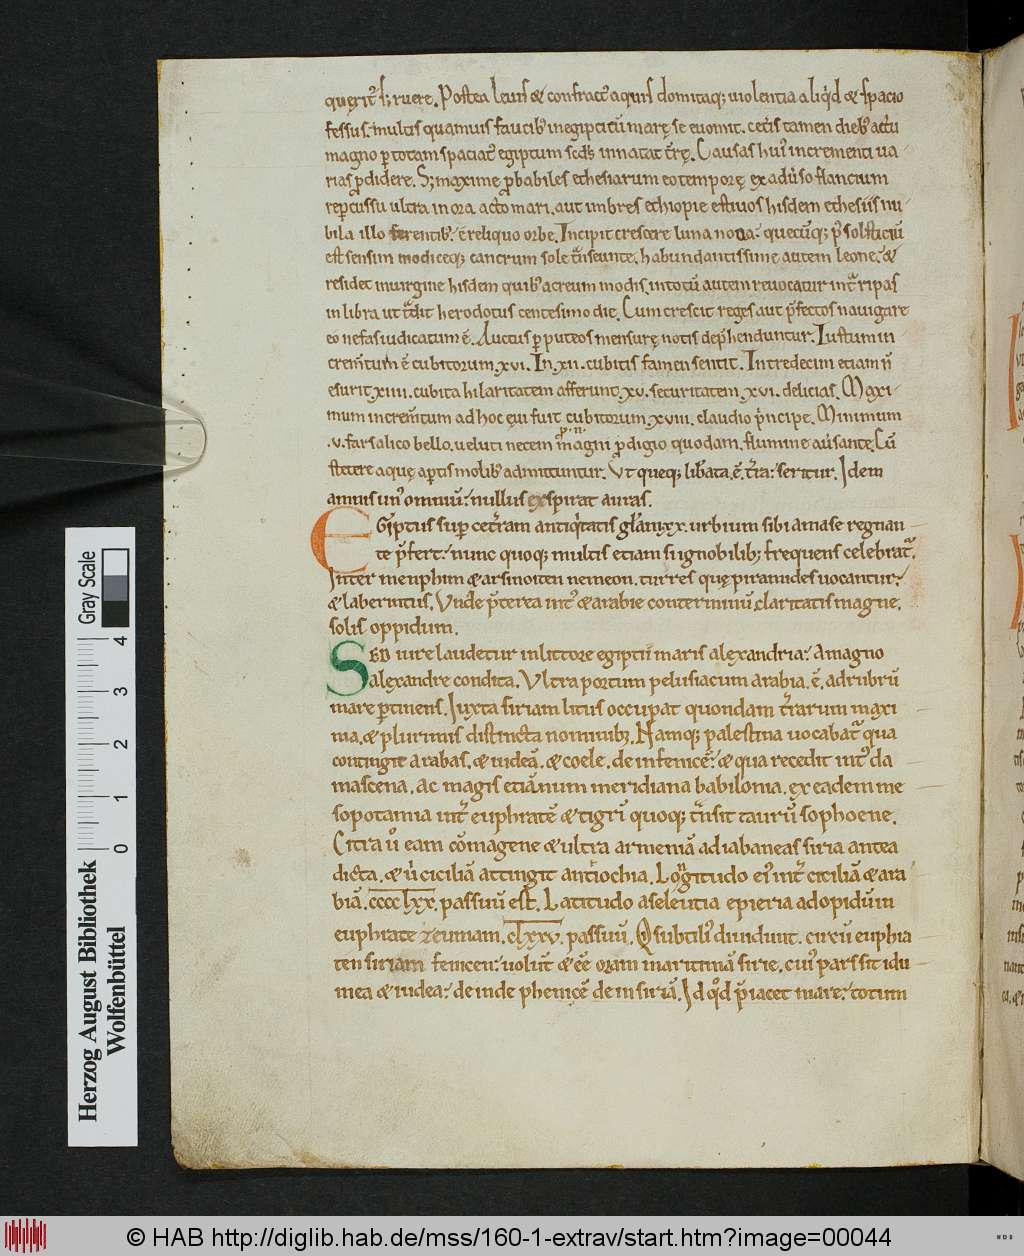 quęrit̄ s; ruere. Postea leuis & confract' aquis domitaq; uiolentia aliq̇d & spacio
fessus. multis quamuis faucib' inegipcitū marę se euomit. cetis tamen dieb' actu
magno p totam spaciat' egiptum innatat trę. Causas hui' incrementi ua
rias pdidere. S; maxime pbabiles ethesiarum eo temporę ex aduso flancium
repcussu ultra in ora acto mari. aut imbres echiopie estiuos hisdem ethesiis nu
bila illo ferentib'. ē reliquo orbe. Incipit crescere luna noua. quecūq; p' solsticiū
est sensim modiceq; cancrum sole transeunte. habundantissime autem leone. &
residet in uirgine hisdem quib' acreum modis. in totū autem reuocatur int ripas
in libra ut tdit herodotus centesimo die. Cum crescit reges aut pfectos nauigare
eo nefas iudicatum ē. Auctus p puteos mensurę notis dephenduntur. Iustum in
crem̄tum ē cubitorum .xvi. In .xii. cubitis famen sentit. In tredecim etiam n̄
esurit .xiiii. cubita hilaritatem afferunt .xv. securitatem .xvi. delicias. Maxi
mum increm̄tum ad hoc ęui fuit cubitorum .xviii. claudio pncipe. Minimum
.v. farsalico bello. ueluti necem magni pdigio quodam. flumine ausante. Cū
stetere aquę aptis molib' admittuntur. Vt queq; libata. ē. tra. seritur. Idem
amnis un' omniū. nullus exspirat auras.
Egiptus sup ceteram antiqtatis glam .xx. urbium sibi amase regnan
te pfert. nunc quoq; multis etiam si ignobilib; frequens celebrat.
Inter menphim & arsinoiten nemeon. turres quę piramides uocantur.
& laberintus. Vnde pterea int & arabie conterminū claritatis magne.
solis oppidum.
SED iure laudetur in littore egiptii maris alexandria. A magno
alexandre condita. Vltra portum pelusiacum arabia .ē. ad rubrū
mare ptinens. Iuxta siriam litus occupat quondam trarum maxi
ma. & plurimis distincta nominib;. Namq; palestina uocabat qua
contingit arabas. & iudeā. & coele. dein fenicē. & qua recedit int' da
mascena. ac magis etiānum meridiana babilonia. ex eadem me
sopotamia int euphratē & tigrī quoq; transit taurū sophoene.
Citra ū eam cōmagene & ultra armeniā adiabaneas siria antea
dicta. & ū ciliciā attingit antiochia. Longitudo ei' int ciciliā & ara
biā. cccclxx. passuū est. Latitudo a seleutia epieria ad opidū in
euphrate zeumam. clxxv. passuū. Q subtili' diuidunt. circū euphra
ten siriam fenicen. uolunt & ēē oram maritimā sirie. cui' pars sit idu
mea & iudea. deinde phenicē dein siriā. Id qd p̄iacet mare. totum
Gray Scale
0 1 2 3 4
Herzog August Bibliothek
Wolfenbüttel
© HAB http://diglib.hab.de/mss/160-1-extrav/start.htm?image=00044